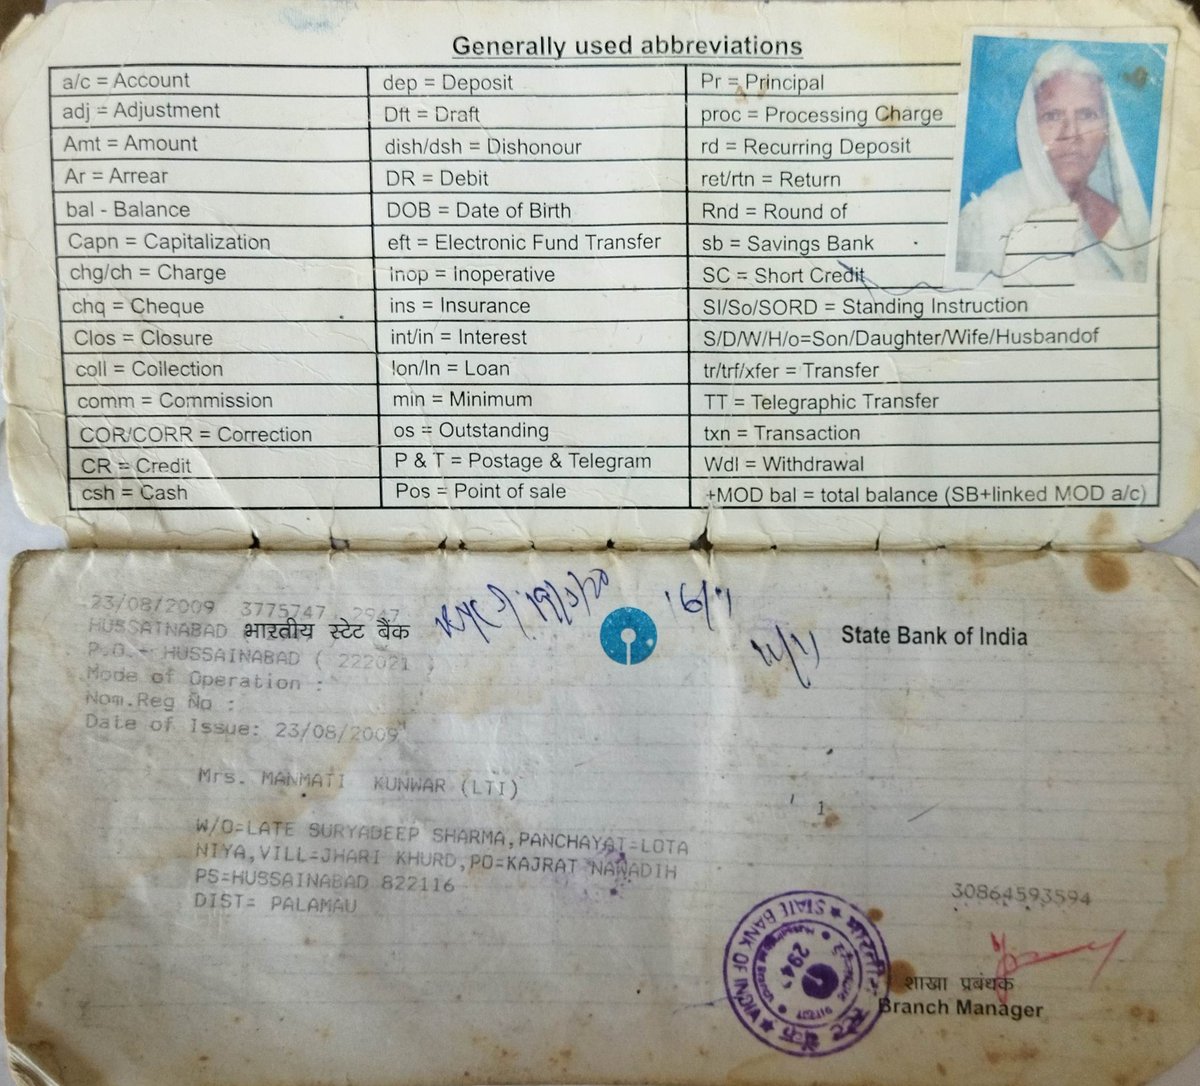 Generally used abbreviations
a/c = Account dep = Deposit Pr = Principal
adj = Adjustment Dft = Draft proc = Processing Charge
Amt = Amount dish/dsh = Dishonour rd = Recurring Deposit
Ar = Arrear DR = Debit ret/rtn = Return
bal - Balance DOB = Date of Birth Rnd = Round of
Capn = Capitalization eft = Electronic Fund Transfer sb = Savings Bank
chg/ch = Charge Inop = Inoperative SC = Short Credit
chq = Cheque ins = Insurance SI/So/SORD = Standing Instruction
Clos = Closure int/in = Interest S/D/W/H/o=Son/Daughter/Wife/Husbandof
coll = Collection lon/ln = Loan tr/trf/xfer = Transfer
comm = Commission min = Minimum TT = Telegraphic Transfer
COR/CORR = Correction os = Outstanding txn = Transaction
CR = Credit P & T = Postage & Telegram Wdl = Withdrawal
csh = Cash Pos = Point of sale +MOD bal = total balance (SB+linked MOD a/c)
23/08/2009 3775747 2947
HUSSAINABAD भारतीय स्टेट बैंक State Bank of India
P.O.- HUSSAINABAD ( 222021 )
Mode of Operation :
Nom.Reg No :
Date of Issue: 23/08/2009
Mrs. MANMATI KUNWAR (LTI)
1
W/O=LATE SURYADEEP SHARMA,PANCHAYAT=LOTA
NIYA,VILL=JHARI KHURD,PO=KAJRAT NAWADIH
PS=HUSSAINABAD 822116
DIST= PALAMAU
30864593594
भारतीय स्टेट बैंक
STATE BANK OF INDIA
शाखा प्रबंधक
Branch Manager